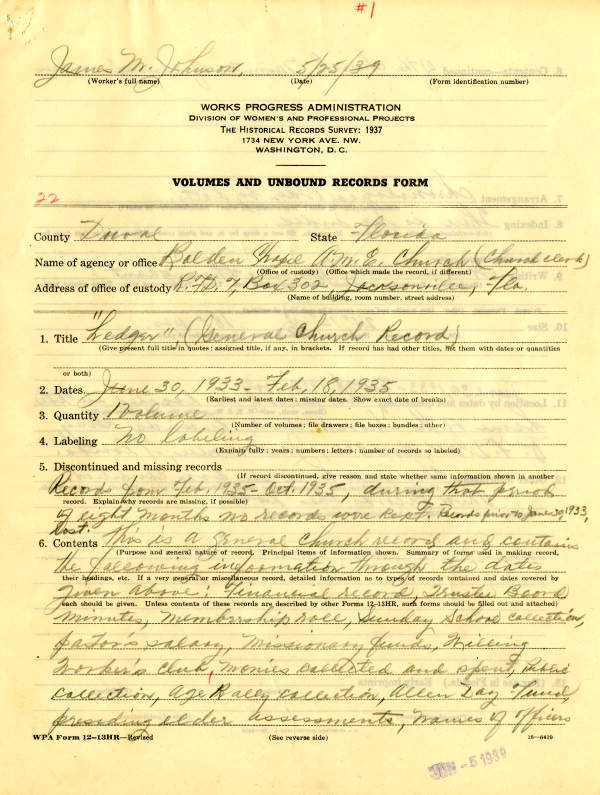 #1
James M. Johnson, 5/25/39
(Worker's full name) (Date) (Form identification number)
WORKS PROGRESS ADMINISTRATION
DIVISION OF WOMEN'S AND PROFESSIONAL PROJECTS
THE HISTORICAL RECORDS SURVEY: 1937
1734 NEW YORK AVE. NW.
WASHINGTON, D. C.
VOLUMES AND UNBOUND RECORDS FORM
22
County Duval State Florida
Name of agency or office Balden Chapel A.M.E. Church (Church Clerk)
(Office of custody) (Office which made the record, if different)
Address of office of custody R.F.D. 7, Box 302, Jacksonville, Fla.
(Name of building, room number, street address)
1. Title "Ledger", (General Church Record)
(Give present full title in quotes; assigned title, if any, in brackets. If record has had other titles, list them with dates or quantities
or both)
2. Dates June 30, 1933 - Feb. 18, 1935
(Earliest and latest dates; missing dates. Show exact date of breaks)
3. Quantity 1 Volume
(Number of volumes; file drawers; file boxes; bundles; other)
4. Labeling No labeling
(Explain fully; years; numbers; letters; number of records so labeled)
5. Discontinued and missing records
(If record discontinued, give reason and state whether same information shown in another
Records from Feb. 1935 - Oct. 1935, during that period
record. Explain why records are missing, if possible)
of eight months no records were kept. Records prior to June 30, 1933,
lost.
6. Contents This is a general church record and contains
(Purpose and general nature of record. Principal items of information shown. Summary of forms used in making record,
the following information through the dates
their headings, etc. If a very general or miscellaneous record, detailed information as to types of records contained and dates covered by
given above: Financial record, Trustee Board
each should be given. Unless contents of these records are described by other Forms 12-13HR, such forms should be filled out and attached)
minutes, membership roll, Sunday School collection,
pastor's salary, missionary funds, Willing
Worker's club, monies collected and spent, public
collection, Age Rally collection, Allen Day Fund,
presiding elder assessments, names of officers
WPA Form 12-13HR—Revised (See reverse side) 16—6429
JUN - 5 1939